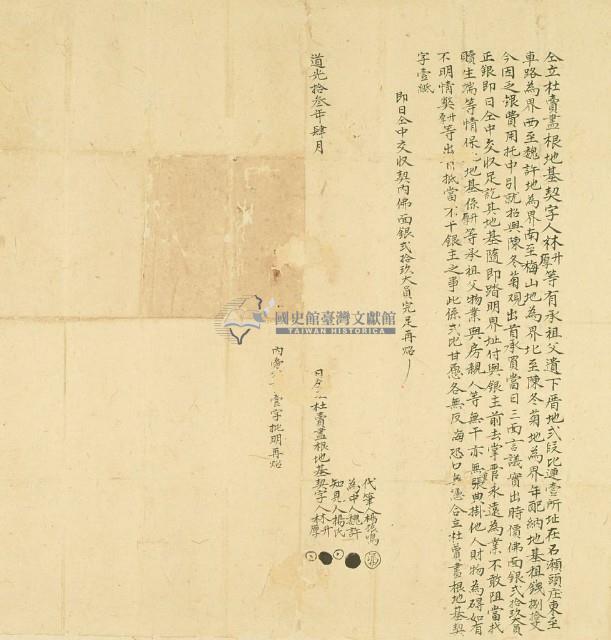 仝立杜賣盡根地基契字人林升厚等有承祖父遺下厝地弍段比連壹所址在石瀨頭庄東至
車路為界西至魏許地為界南至梅山地為界北至陳冬菊地為界年配納地基租錢捌拾文
今因乏銀費用托中引就招與陳冬菊观出首承買當日三面言議實出時價佛面銀弍拾玖大員
正銀即日仝中交收足訖其地基隨即踏明界址付與銀主前去掌管永遠為業不敢阻當找
贖生端等情保此地基係升厚等承祖父物業與房親人等無干亦無張典掛他人財物為碍如有
不明情獘升厚等出首抵當不干銀主之事此係弍比甘愿各無反悔恐口無憑合立杜賣盡根地基契
字壹紙
即日仝中交收契內佛面銀弍拾玖大員完足再炤
道光拾叁年肆月 日仝立杜賣盡根地基契字人林升厚
知見人楊氏
為中人魏許
代筆人楊振鳴
內 壹字批明再炤
國史館臺灣文獻館
TAIWAN HISTORICA